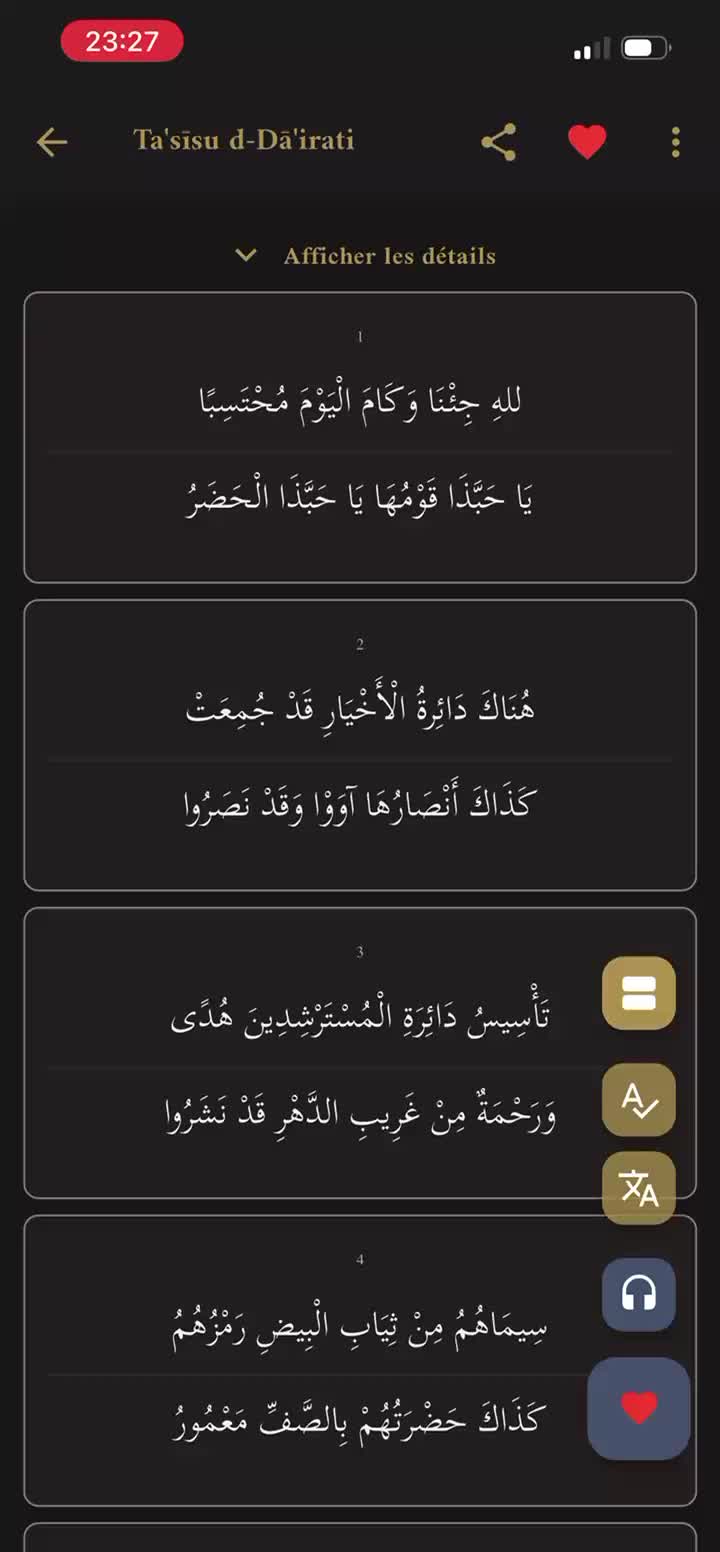 23:27
Ta'sīsu d-Dā'irati
Afficher les détails
1
للهِ جِئْنَا وَكَامَ الْيَوْمَ مُحْتَسِبًا
يَا حَبَّذَا قَوْمُهَا يَا حَبَّذَا الْحَضَرُ
2
هُنَاكَ دَائِرةُ الْأَخْيَارِ قَدْ جُمِعَتْ
كَذَاكَ أَنْصَارُهَا آوَوْا وَقَدْ نَصَرُوا
3
تَأْسِيسُ دَائِرَةِ الْمُسْتَرْشِدِينَ هُدًى
وَرَحْمَةٌ مِنْ غَرِيبِ الدَّهْرِ قَدْ نَشَرُوا
4
سِيمَاهُمُ مِنْ ثِيَابِ الْبِيضِ رَمْزُهُمُ
كَذَاكَ حَضْرَتُهُمْ بِالصَّفِّ مَعْمُورُ